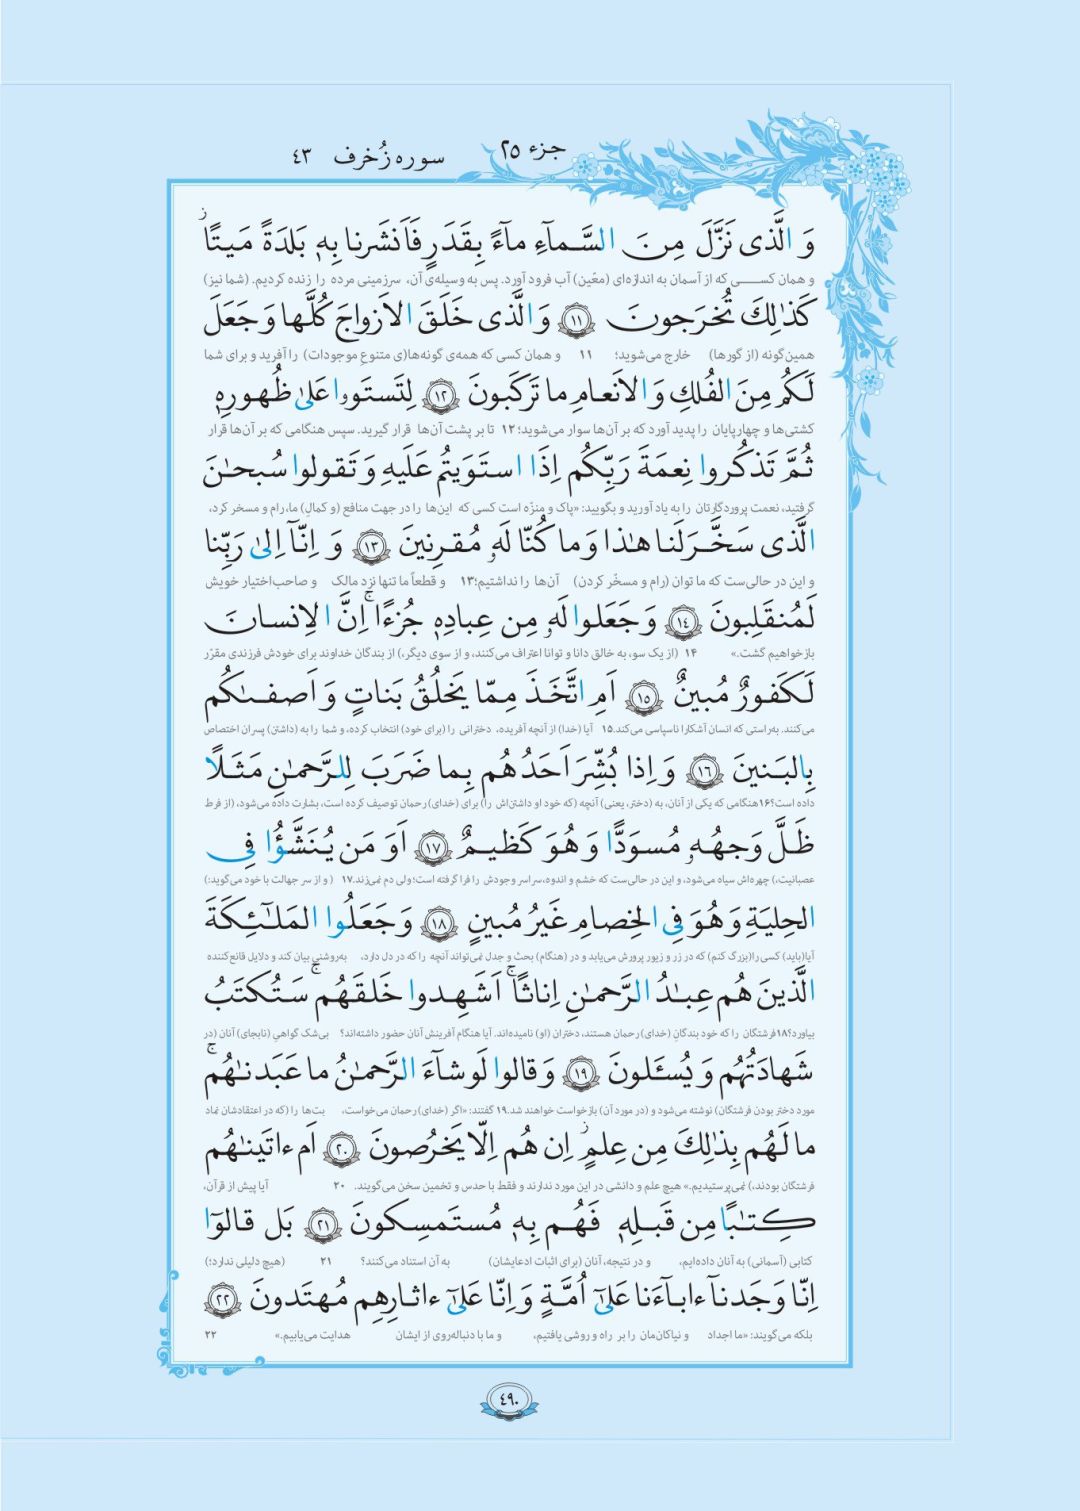 جزء ۲۵
سوره زُخرف ۴۳
وَ الَّذی نَزَّلَ مِنَ السَّماۤءِ ماۤءً بِقَدَرٍ فَاَنشَرنا بِهٖ بَلدَةً مَیتًا ز
و همان کسی که از آسمان به اندازه‌ای (معیّن) آب فرود آورد. پس به وسیله‌ی آن، سرزمینی مرده را زنده کردیم. (شما نیز)
کَذٰلِکَ تُخرَجونَ ﴿۱۱﴾ وَ الَّذی خَلَقَ الاَزواجَ کُلَّها وَ جَعَلَ
همین‌گونه (از گورها) خارج می‌شوید؛ ۱۱ و همان کسی که همه‌ی گونه‌ها(ی متنوع موجودات) را آفرید و برای شما
لَکُم مِنَ الفُلکِ وَ الاَنعامِ ما تَرکَبونَ ﴿۱۲﴾ لِتَستَوۥا عَلیٰ ظُهورِهٖ
کشتی‌ها و چهارپایان را پدید آورد که بر آن‌ها سوار می‌شوید؛ ۱۲ تا بر پشت آن‌ها قرار گیرید. سپس هنگامی که بر آن‌ها قرار
ثُمَّ تَذکُروا نِعمَةَ رَبِّکُم اِذَا استَوَیتُم عَلَیهِ وَ تَقولوا سُبحٰنَ
گرفتید، نعمت پروردگارتان را به یاد آورید و بگویید: «پاک و منزّه است کسی که این‌ها را در جهت منافع (و کمالِ) ما، رام و مسخر کرد،
الَّذی سَخَّرَ لَنا هٰذا وَ ما کُنّا لَهٗ مُقرِنینَ ﴿۱۳﴾ وَ اِنّاۤ اِلیٰ رَبِّنا
و این در حالی‌ست که ما توان (رام و مسخّر کردن) آن‌ها را نداشتیم؛ ۱۳ و قطعاً ما تنها نزد مالک و صاحب‌اختیار خویش
لَمُنقَلِبونَ ﴿۱۴﴾ وَ جَعَلوا لَهٗ مِن عِبادِهٖ جُزءًا ۚ اِنَّ الاِنسانَ
بازخواهیم گشت.» ۱۴ (از یک سو، به خالق دانا و توانا اعتراف می‌کنند، و از سوی دیگر،) از بندگان خداوند برای خودش فرزندی مقرّر
لَکَفورٌ مُبینٌ ﴿۱۵﴾ اَمِ اتَّخَذَ مِمّا یَخلُقُ بَناتٍ وَ اَصفٰىکُم
می‌کنند. به‌راستی که انسان آشکارا ناسپاسی می‌کند. ۱۵ آیا (خدا) از آنچه آفریده، دخترانی را (برای خود) انتخاب کرده، و شما را به (داشتن) پسران اختصاص
بِالبَنینَ ﴿۱۶﴾ وَ اِذا بُشِّرَ اَحَدُهُم بِما ضَرَبَ لِلرَّحمٰنِ مَثَلًا
داده است؟ ۱۶ هنگامی که یکی از آنان، به (دختر، یعنی) آنچه (که خود او داشتن‌اش را) برای (خدای) رحمان توصیف کرده است، بشارت داده می‌شود، (از فرط
ظَلَّ وَجهُهٗ مُسوَدًّا وَ هُوَ کَظیمٌ ﴿۱۷﴾ اَوَ مَن یُنَشَّؤُا فِی
عصبانیت،) چهره‌اش سیاه می‌شود، و این در حالی‌ست که خشم و اندوه، سراسر وجودش را فرا گرفته است؛ ولی دم نمی‌زند. ۱۷ (و از سر جهالت با خود می‌گوید:)
الحِلیَةِ وَ هُوَ فِی الخِصامِ غَیرُ مُبینٍ ﴿۱۸﴾ وَ جَعَلُوا المَلٰۤئِکَةَ
آیا (باید) کسی را (بزرگ کنم) که در زر و زیور پرورش می‌یابد و در (هنگام) بحث و جدل نمی‌تواند آنچه را که در دل دارد، به‌روشنی بیان کند و دلایل قانع‌کننده
الَّذینَ هُم عِبادُ الرَّحمٰنِ اِناثًا ۚ اَشَهِدوا خَلقَهُم ۚ سَتُکتَبُ
بیاورد؟ ۱۸ فرشتگان را که خود بندگان (خدای) رحمان هستند، دختران (او) نامیده‌اند. آیا هنگام آفرینش آنان حضور داشته‌اند؟ بی‌شک گواهیِ (نابجای) آنان (در
شَهادَتُهُم وَ یُسئَلونَ ﴿۱۹﴾ وَ قالوا لَو شاۤءَ الرَّحمٰنُ ما عَبَدنٰهُم ۚ
مورد دختر بودن فرشتگان) نوشته می‌شود و (در مورد آن) بازخواست خواهند شد. ۱۹ گفتند: «اگر (خدای) رحمان می‌خواست، بت‌ها را (که در اعتقادشان نماد
ما لَهُم بِذٰلِکَ مِن عِلمٍ ز اِن هُم اِلّا یَخرُصونَ ﴿۲۰﴾ اَم ءاتَینٰهُم
فرشتگان بودند،) نمی‌پرستیدیم.» هیچ علم و دانشی در این مورد ندارند و فقط با حدس و تخمین سخن می‌گویند. ۲۰ آیا پیش از قرآن،
کِتٰبًا مِن قَبلِهٖ فَهُم بِهٖ مُستَمسِکونَ ﴿۲۱﴾ بَل قالوۤا
کتابی (آسمانی) به آنان داده‌ایم، و در نتیجه، آنان (برای اثبات ادعایشان) به آن استناد می‌کنند؟ ۲۱ (هیچ دلیلی ندارد؛)
اِنّا وَجَدناۤ ءاباۤءَنا عَلیٰۤ اُمَّةٍ وَ اِنّا عَلیٰۤ ءاثارِهِم مُهتَدونَ ﴿۲۲﴾
بلکه می‌گویند: «ما اجداد و نیاکان‌مان را بر راه و روشی یافتیم، و ما با دنباله‌روی از ایشان هدایت می‌یابیم.» ۲۲
۴۹۰